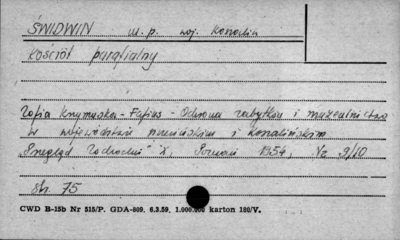 ŚWIDWIN m. p. woj. Koszalin
Kościół parafialny
Zofia Krzymuska-Fafius - Ochrona zabytków i muzealnictwo
w województwie szczecińskim i koszalińskim
„Przegląd Zachodni" X, Poznań 1954, Nr 9/10
str. 75
CWD B-15b Nr 515/P. GDA-809. 6.3.59. 1.000.000 karton 180/V.